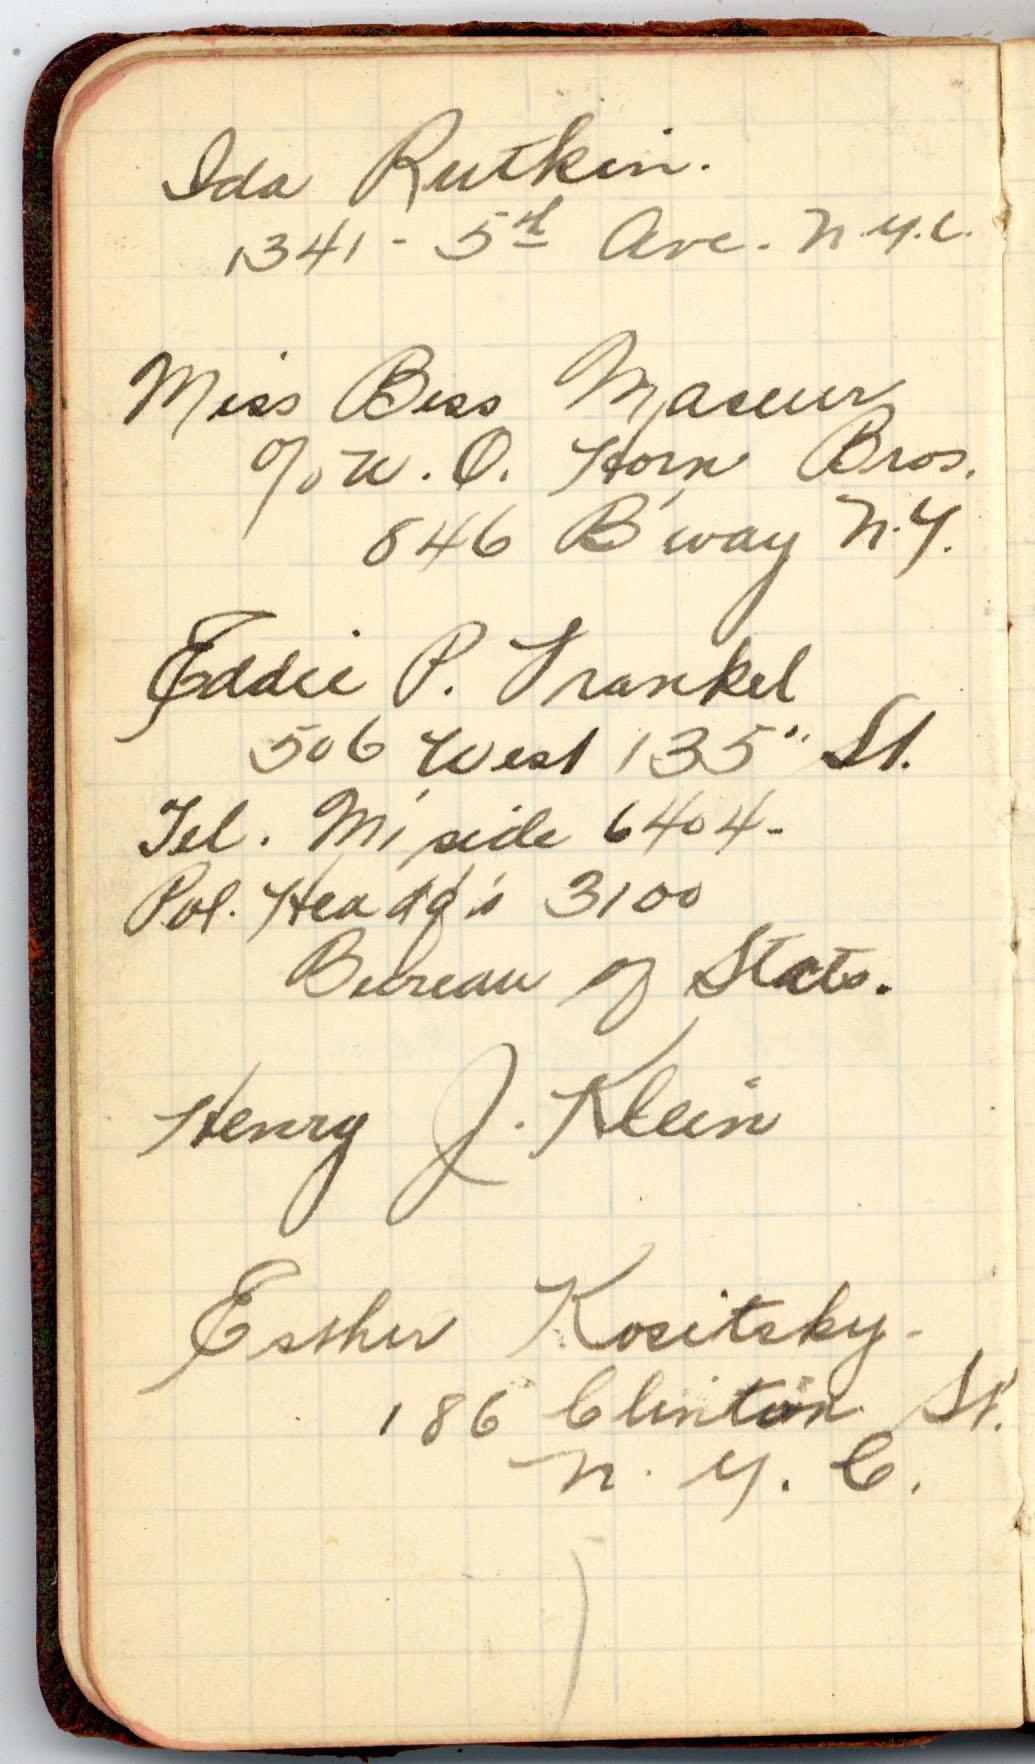 Ida Rutkin.
1341 - 5th Ave. N.Y.C.
Miss Bess Maseur
c/o W. O. Horn Bros.
846 B'way N.Y.
Eddie P. Frankel
506 West 135" St.
Tel. M'side 6404-
Pol. Headq's 3100
Bureau of Stats.
Henry J. Klein
Esther Kositsky-
186 Clinton St.
N. Y. C.